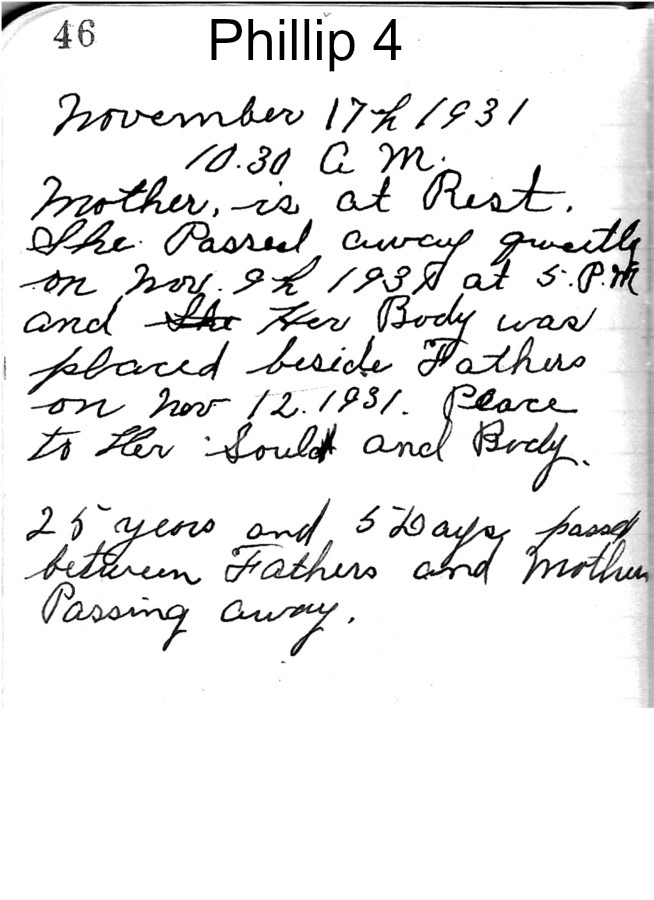 46
Phillip 4
November 17th 1931
10.30 A M.
Mother, is at Rest.
She Passed away qwietly
on Nov. 9th 1931 at 5.P.M
and She Her Body was
placed beside Fathers
on Nov 12.1931. Peace
to Her Sould and Body.
25 years and 5 Days passed
between Fathers and Mothers
Passing away.